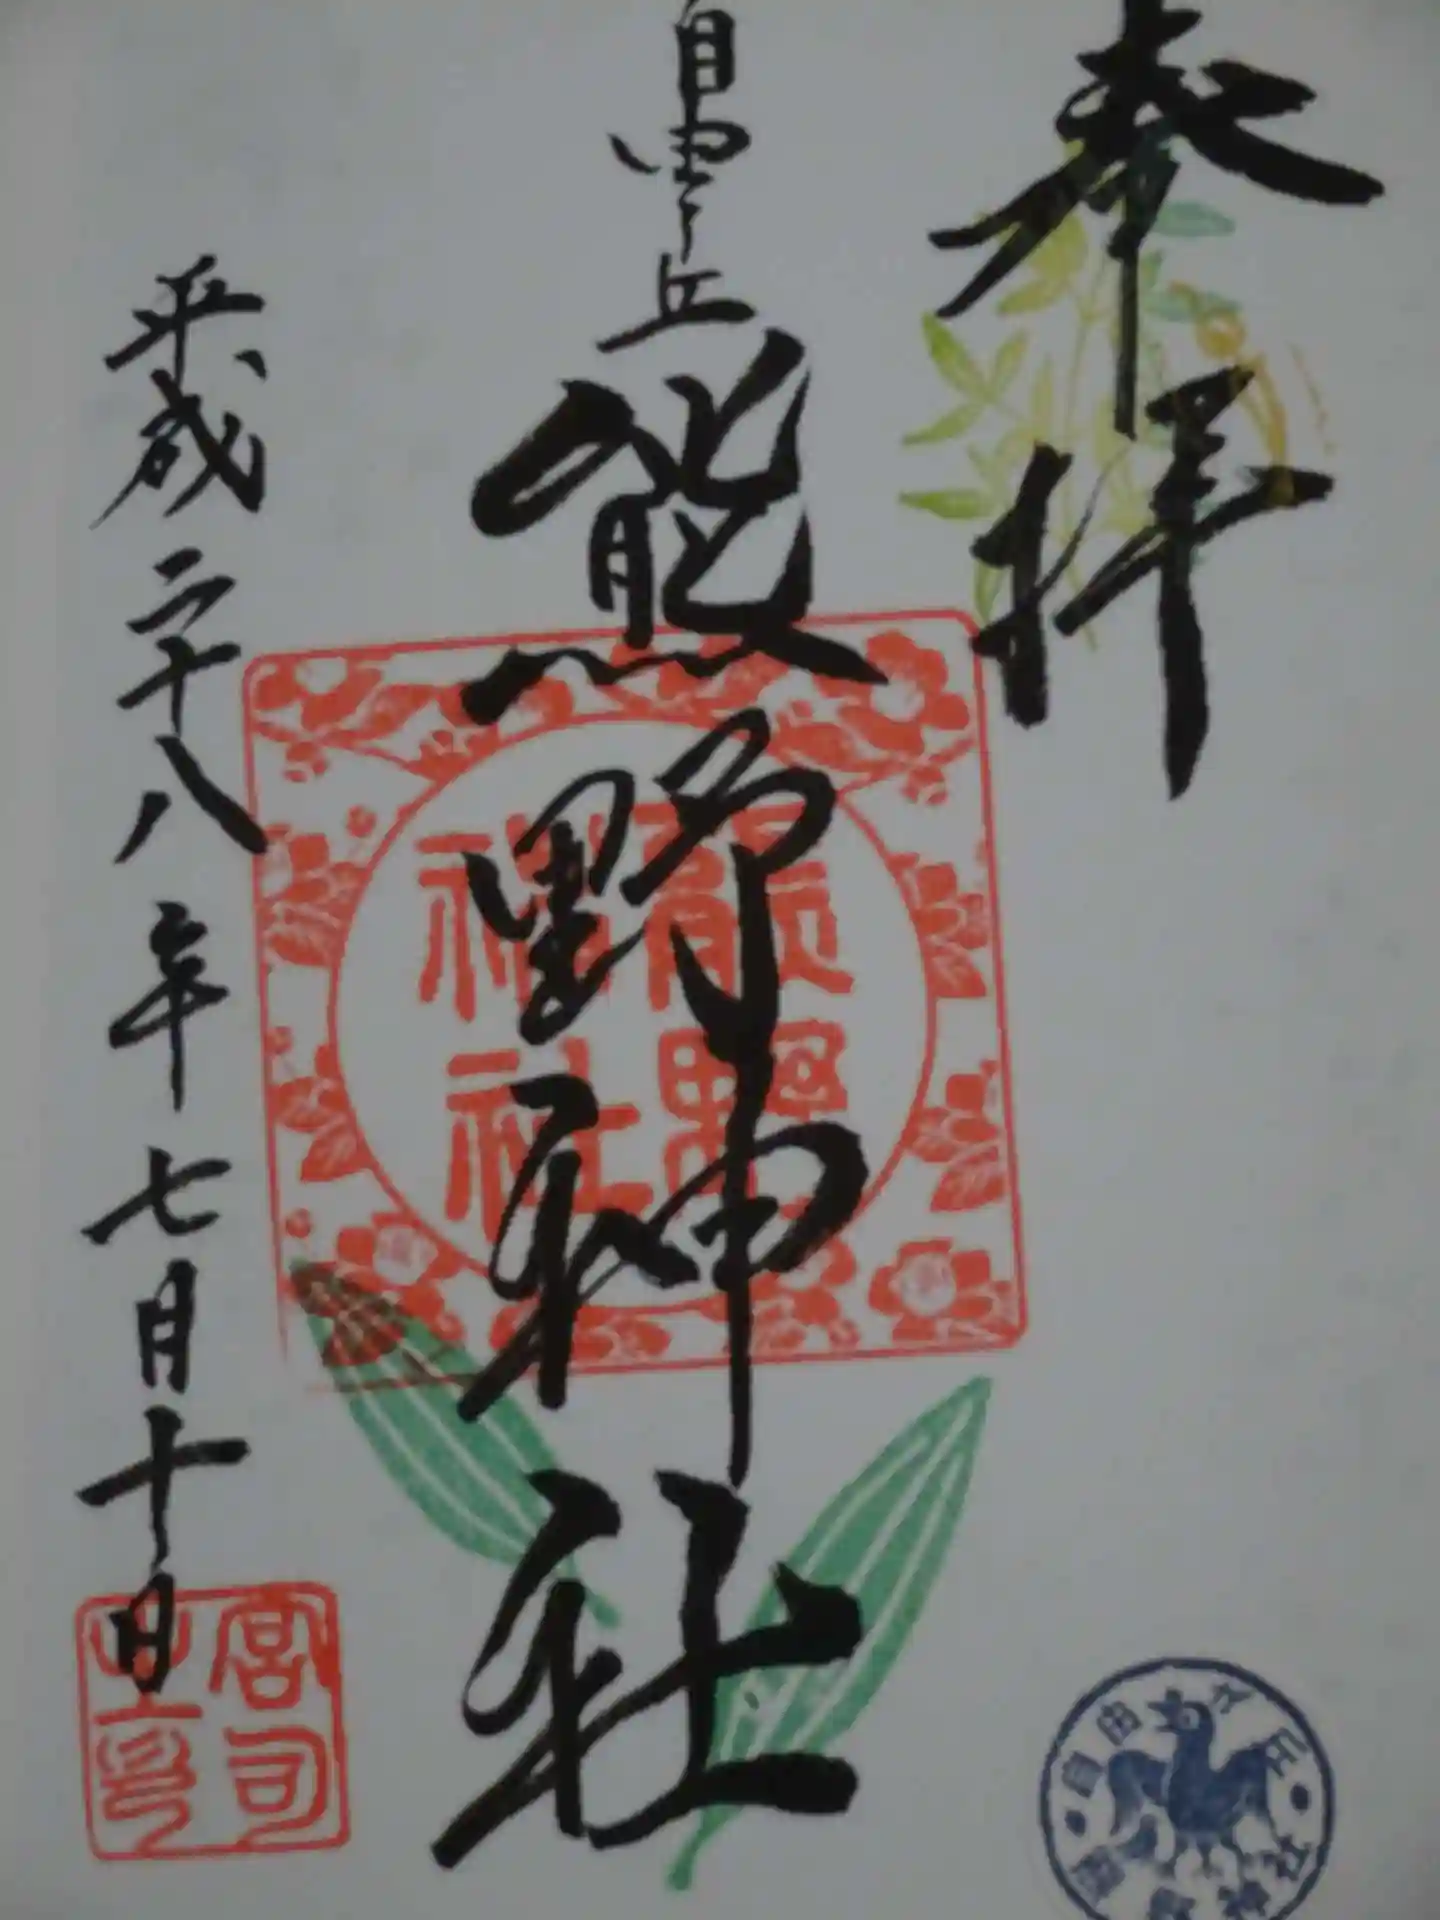 奉拝
自由ヶ丘
熊野神社
平成二十八年七月十日
熊野
神社
宮司
之印
自由ヶ丘
熊野神社